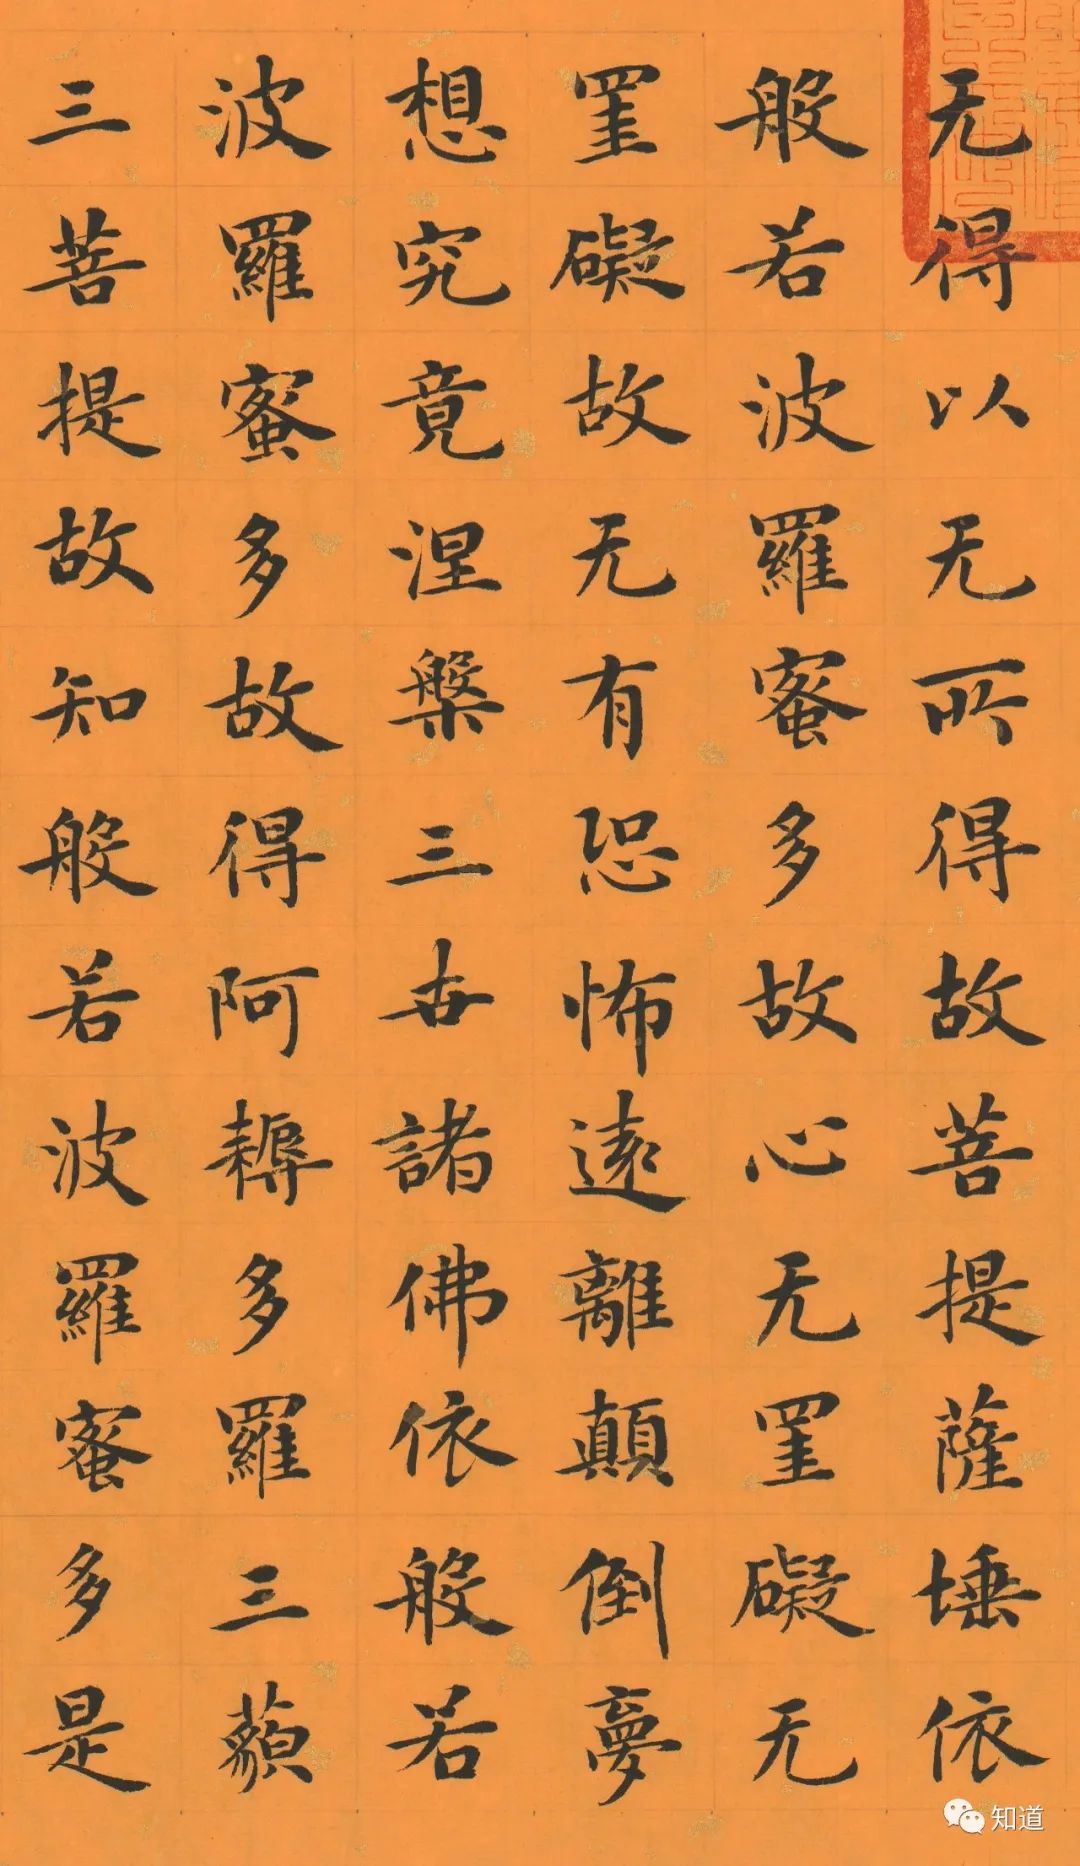 无得以无所得故菩提薩埵依
般若波羅蜜多故心无罣礙无
罣礙故无有恐怖遠離顛倒夢
想究竟涅槃三世諸佛依般若
波羅蜜多故得阿耨多羅三藐
三菩提故知般若波羅蜜多是
知道